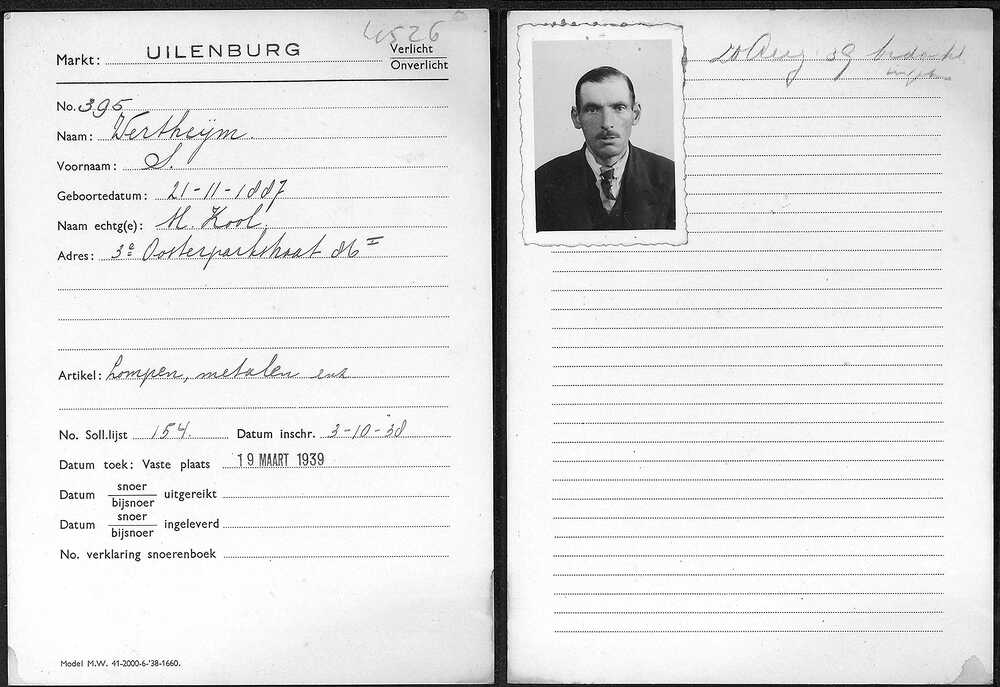 4526
Markt: UILENBURG Verlicht
Onverlicht
No. 395
Naam: Wertheijm.
Voornaam: S.
Geboortedatum: 21-11-1887
Naam echtg(e): M. Kool.
Adres: 3e Oosterparkstraat 86 I
Artikel: Lompen, metalen enz
No. Soll.lijst 154. Datum inschr. 3-10-38
Datum toek: Vaste plaats 19 MAART 1939
Datum snoer
bijsnoer uitgereikt
Datum snoer
bijsnoer ingeleverd
No. verklaring snoerenboek
Model M.W. 41-2000-6-'38-1660.
20 Aug 39